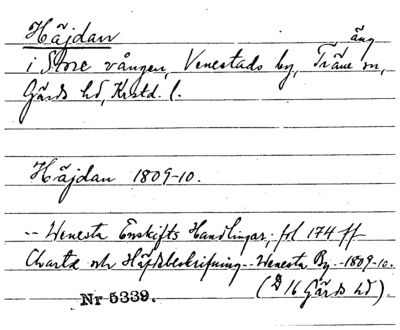 Häjdan
äng
i Store vången, Venestads by, Träne sn,
Gärds hd, Krstd. l.
Häjdan 1809-10.
-- Wenesta Enskifts Handlingar, fol 174 ff
Charta och Häfdbeskrifning -- Wenesta By -- 1809-10.
(D 16 Gärds hd).
Nr 5339.